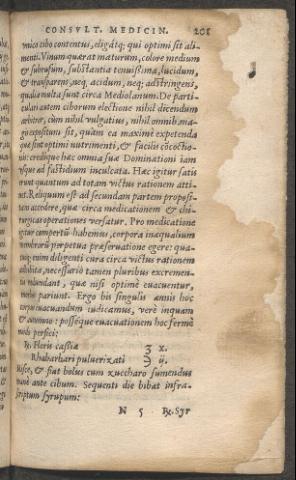 CONSVLT. MEDICIN. 201
unico cibo contentus, eligátq; qui optimi sit ali-
menti. Vinum quærat maturum, colore medium
& subrufum, substantia tenuissima, lucidum,
& transparens, neq; acidum, neq; adstringens,
qualia multa sunt circa Mediolanum. De parti-
culari autem ciborum electione nihil dicendum
arbitror, cùm nihil vulgatius, nihil omnib. ma-
gis expositum sit, quàm ea maximè expetenda
quæ sint optimi nutrimenti, & facilis cōcoctio-
nis: credique hæc omnia suæ Dominationi iam
vsque ad fastidium inculcata. Hæc igitur satis
erunt quantum ad totam victus rationem atti-
net. Reliquum est ad secundam partem proposi-
tam accedere, quæ circa medicationem & chi-
rurgicas operationes versatur. Pro medicatione
igitur compertū habemus, corpora inæqualium
membrorū perpetua præseruatione egere: quan-
uis enim diligenti cura circa victus rationem
adhibita, necessariò tamen pluribus excremen-
tis redundant, quæ nisi optimè euacuentur,
pariunt. Ergo bis singulis annis hoc
corpus euacuandum iudicamus, vere inquam
& autumno: posséque euacuationem hoc fermè
modo perfici:
℞. Floris cassiæ ʒ x.
Rhabarbari puluerizati ℈ ij.
Misce, & fiat bolus cum zuccharo sumendus
manè ante cibum. Sequenti die bibat infra-
scriptum syrupum:
N 5 ℞. Syr